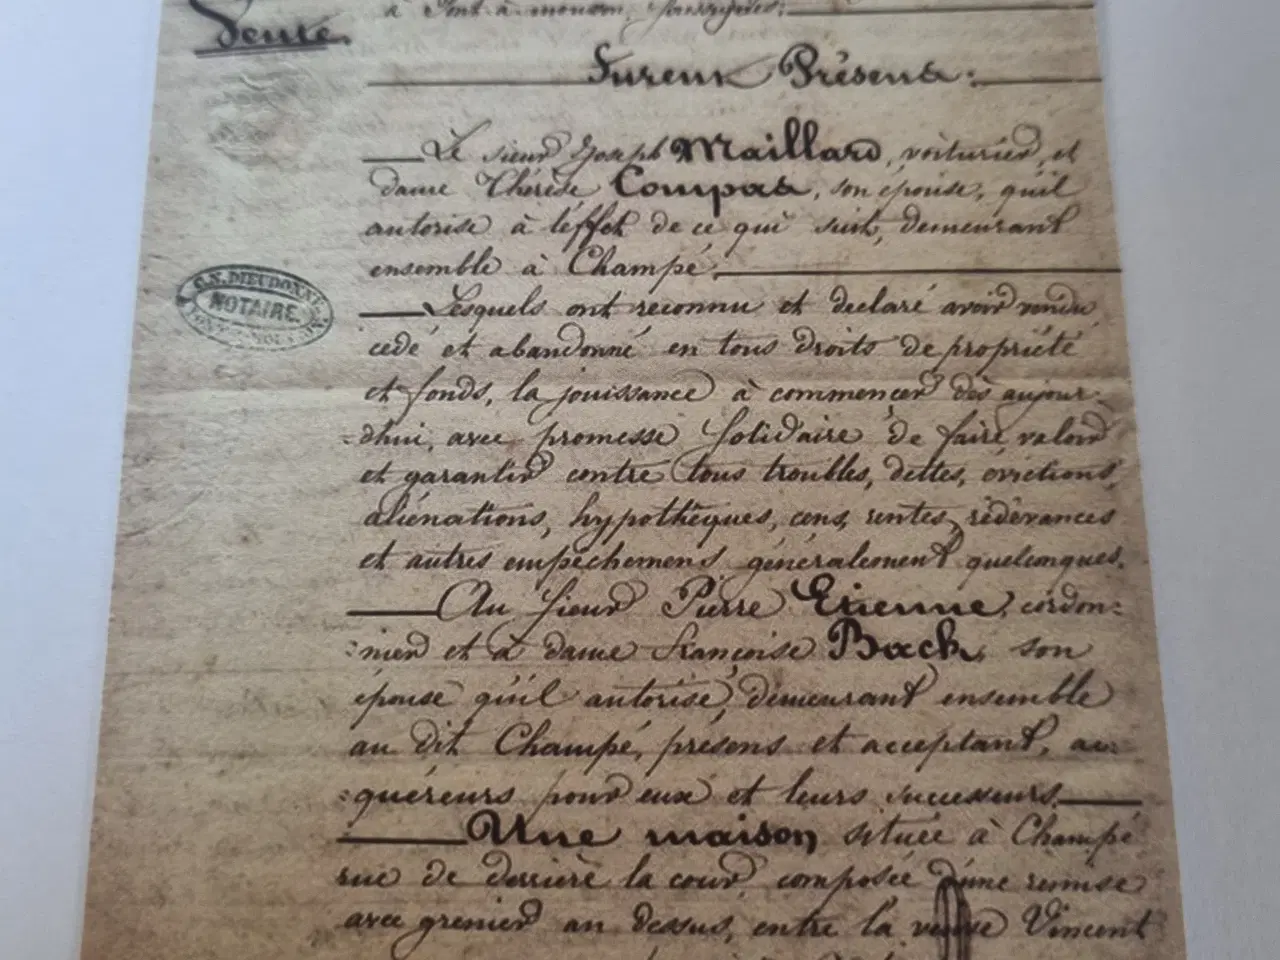 Vente.
à Pont à mousson, soussignés:
Furent Présens:
Le sieur Joseph Maillard, voiturier, et
dame Thérèse Compas, son épouse, qu'il
autorise à l'effet de ce qui suit, demeurant
ensemble à Champé.
C. N. DIEUDONNÉ
NOTAIRE
Lesquels ont reconnu et declaré avoir vendu
cédé et abandonné en tous droits de propriété
et fonds, la jouissance à commencer dès aujour-
=dhui, avec promesse solidaire de faire valoir
et garantir contre tous troubles, dettes, évictions,
aliénations, hypothèques, cens, rentes, rédevances
et autres empêchemens généralement quelconques.
Au sieur Pierre Etienne, cordon=
=nier et à dame Françoise Back, son
épouse qu'il autorise, demeurant ensemble
au dit Champé, présens et acceptant, ac=
=quéreurs pour eux et leurs successeurs.
Une maison située à Champé
rue de derrière la cour, composée d'une remise
avec grenier au dessus, entre la veuve Vincent